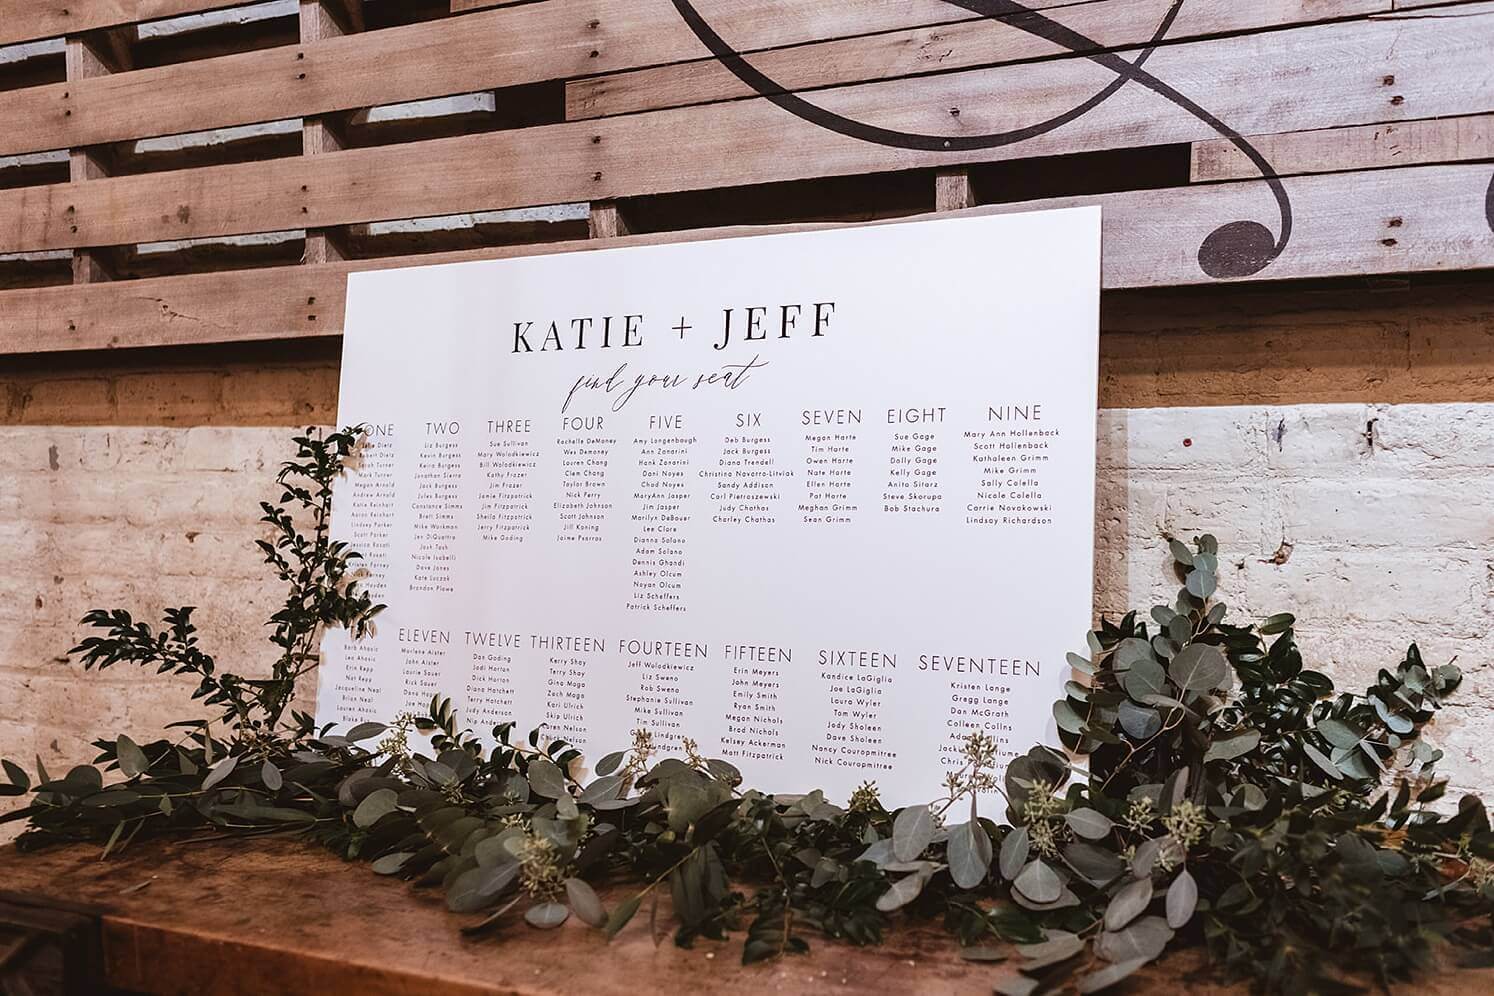 KATIE + JEFF
find your seat
ONE
Dietz
Dietz
Sarah Turner
Mark Turner
Megan Arnold
Andrew Arnold
Katie Reinhart
Aaron Reichert
Lindsey Parker
Scott Parker
Jessica Rosati
Rosati
Kristen Farney
Nick Farney
Hayden
Hayden
TWO
Liz Burgess
Kevin Burgess
Keira Burgess
Jonathan Sierra
Jack Burgess
Jules Burgess
Constance Simms
Brett Simms
Mike Workman
Jen DiQuattro
Josh Tash
Nicole Isabelli
Dave Jones
Kate Luczak
Brandon Plowe
THREE
Sue Sullivan
Mary Wolodkiewicz
Bill Wolodkiewicz
Kathy Frazer
Jim Frazer
Jamie Fitzpatrick
Jim Fitzpatrick
Sheila Fitzpatrick
Jerry Fitzpatrick
Mike Goding
FOUR
Rachelle DeMoney
Wes Demoney
Lauren Chang
Clem Chang
Taylor Brown
Nick Ferry
Elizabeth Johnson
Scott Johnson
Jill Koning
Jaime Psarras
FIVE
Amy Longenbaugh
Ann Zanarini
Hank Zanarini
Dani Noyes
Chad Noyes
MaryAnn Jasper
Jim Jasper
Marilyn DeBauer
Lee Clare
Dianna Solano
Adam Solano
Dennis Ghandi
Ashley Olcum
Noyan Olcum
Liz Scheffers
Patrick Scheffers
SIX
Deb Burgess
Jack Burgess
Diana Trendell
Christina Navarro-Litviak
Sandy Addison
Carl Pietroszewski
Judy Chathas
Charley Chathas
SEVEN
Megan Harte
Tim Harte
Owen Harte
Nate Harte
Ellen Harte
Pat Harte
Meghan Grimm
Sean Grimm
EIGHT
Sue Gage
Mike Gage
Dolly Gage
Kelly Gage
Anita Sitarz
Steve Skorupa
Bob Stachura
NINE
Mary Ann Hollenback
Scott Hollenback
Kathaleen Grimm
Mike Grimm
Sally Colella
Nicole Colella
Carrie Novakowski
Lindsay Richardson
Barb Ahasic
Leo Ahasic
Erin Repp
Nat Repp
Jacqueline Neal
Brian Neal
Lauren Ahasic
Blake
ELEVEN
Marlene Alster
John Alster
Laurie Sauer
Rick Sauer
Dana
Joe
TWELVE
Dan Goding
Jodi Horton
Dick Horton
Diana Hatchett
Terry Hatchett
Judy Anderson
Nip Anderson
THIRTEEN
Kerry Shay
Terry Shay
Gina Maga
Zach Maga
Kari Ulrich
Skip Ulrich
Karen Nelson
Chuck Nelson
FOURTEEN
Jeff Wolodkiewicz
Liz Sweno
Rob Sweno
Stephanie Sullivan
Mike Sullivan
Tim Sullivan
Lindgren
Lindgren
FIFTEEN
Erin Meyers
John Meyers
Emily Smith
Ryan Smith
Megan Nichols
Brad Nichols
Kelsey Ackerman
Matt Fitzpatrick
SIXTEEN
Kandice LaGiglia
Joe LaGiglia
Laura Wyler
Tom Wyler
Jody Sholeen
Dave Sholeen
Nancy Couropmitree
Nick Couropmitree
SEVENTEEN
Kristen Lange
Gregg Lange
Dan McGrath
Colleen Collins
Adam Collins